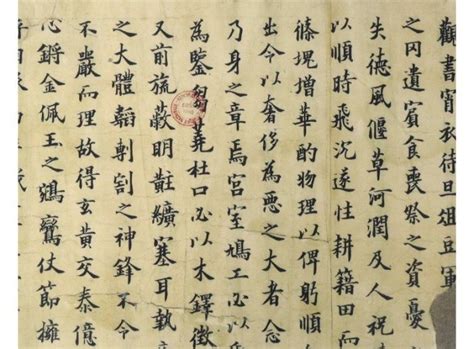 觀書宵衣待旦俎豆軍
之囚遺賓食喪祭之資憂
失德風偃草河潤及人祝
以順時飛沉遂性耕籍田而
增華酌物理以俾躬順
出令以奢侈為惡之大者念
乃身之章焉宮室鳩工必以
為鑒芻蕘杜口必以木鐸徵
又前旒蔽明黈纊塞耳執
之大體韜剸割之神鋒不令
不嚴而理故得玄黃交泰億
心鏘金佩玉之鵷鸞仗節擁